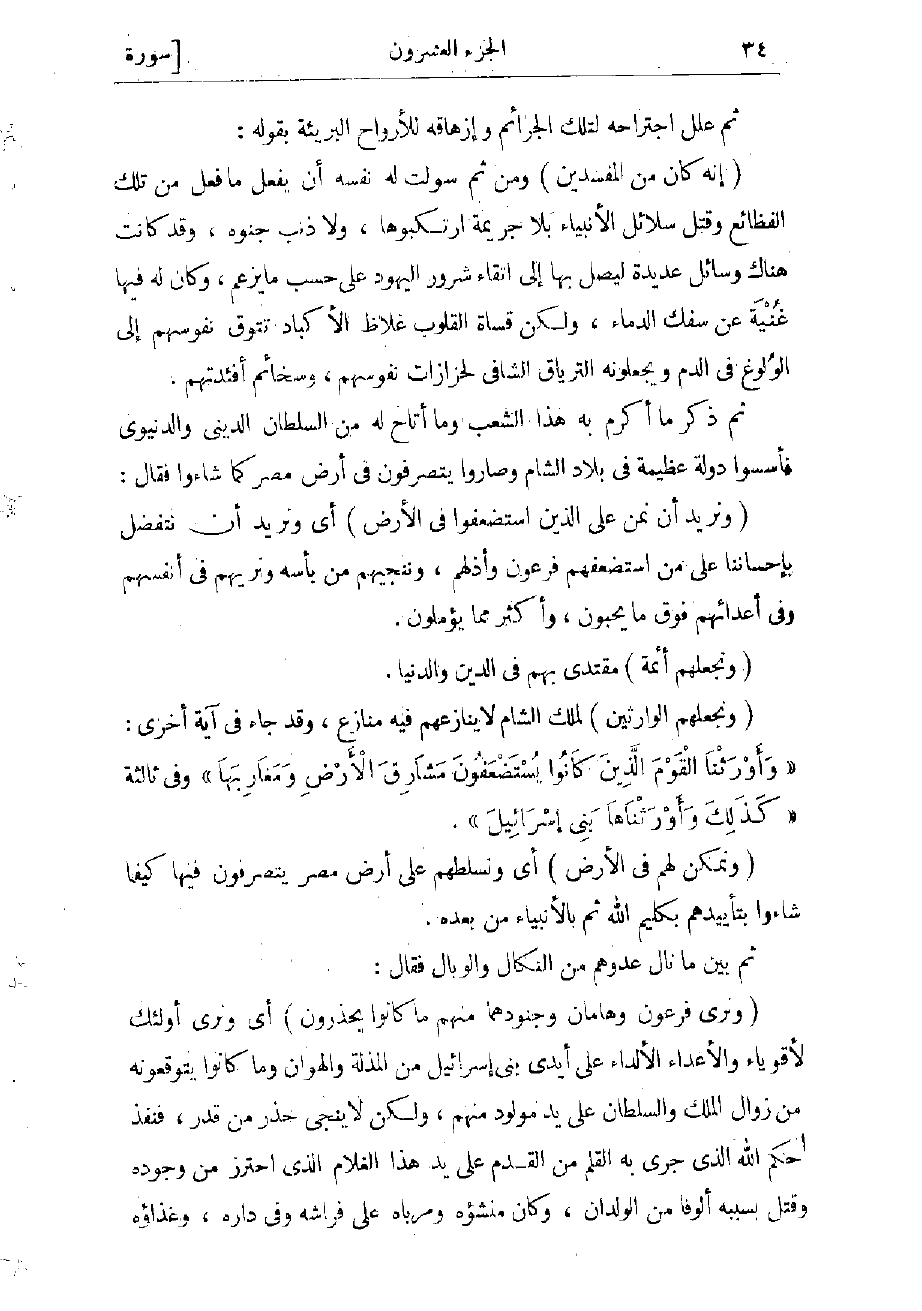 ٣٤ الجزء العشرون [سورة
ثم علل اجتراحه لتلك الجرائم وإزهاقه للأرواح البريئة بقوله :
( إنه كان من المفسدين ) ومن ثم سولت له نفسه أن يفعل ما فعل من تلك
الفظائع وقتل سلائل الأنبياء بلا جريمة ارتكبوها ، ولا ذنب جنوه ، وقد كانت
هناك وسائل عديدة ليصل بها إلى اتقاء شرور اليهود على حسب ما يزعم ، وكان له فيها
غُنْيَة عن سفك الدماء ، ولكن قساة القلوب غلاظ الأكباد تتوق نفوسهم إلى
الوُلوغ فى الدم ويجعلونه الترياق الشافى لحزازات نفوسهم ، وسخائم أفئدتهم .
ثم ذكر ما أكرم به هذا الشعب وما أتاح له من السلطان الدينى والدنيوى
فأسسوا دولة عظيمة فى بلاد الشام وصاروا يتصرفون فى أرض مصر كما شاءوا فقال :
( ونريد أن نمن على الذين استضعفوا فى الأرض ) أى ونريد أن نتفضل
بإحساننا على من استضعفهم فرعون وأذلهم ، وننجيهم من بأسه ونريهم فى أنفسهم
وفى أعدائهم فوق ما يحبون ، وأكثر مما يؤملون .
( ونجعلهم أئمة ) مقتدى بهم فى الدين والدنيا .
( ونجعلهم الوارثين ) لملك الشام لا ينازعهم فيه منازع ، وقد جاء فى آية أخرى :
« وَأَوْرَثْنَا الْقَوْمَ الَّذِينَ كَانُوا يُسْتَضْعَفُونَ مَشَارِقَ الْأَرْضِ وَمَغَارِبَهَا » وفى ثالثة
« كَذَلِكَ وَأَوْرَثْنَاهَا بَنِى إِسْرَائِيلَ » .
( ونمكن لهم فى الأرض ) أى ونسلطهم على أرض مصر يتصرفون فيها كيفما
شاءوا بتأييدهم بكليم الله ثم بالأنبياء من بعده .
ثم بين ما نال عدوهم من النكال والوبال فقال :
( ونرى فرعون وهامان وجنودهما منهم ما كانوا يحذرون ) أى ونرى أولئك
لأقوياء والأعداء الألداء على أيدى بنى إسرائيل من المذلة والهوان وما كانوا يتوقعونه
من زوال الملك والسلطان على يد مولود منهم ، ولكن لا ينجى حذر من قدر ، فنفذ
حكم الله الذى جرى به القلم من القدم على يد هذا الغلام الذى احترز من وجوده
وقتل بسببه ألوفا من الولدان ، وكان منشؤه ومرباه على فراشه وفى داره ، وغذاؤه